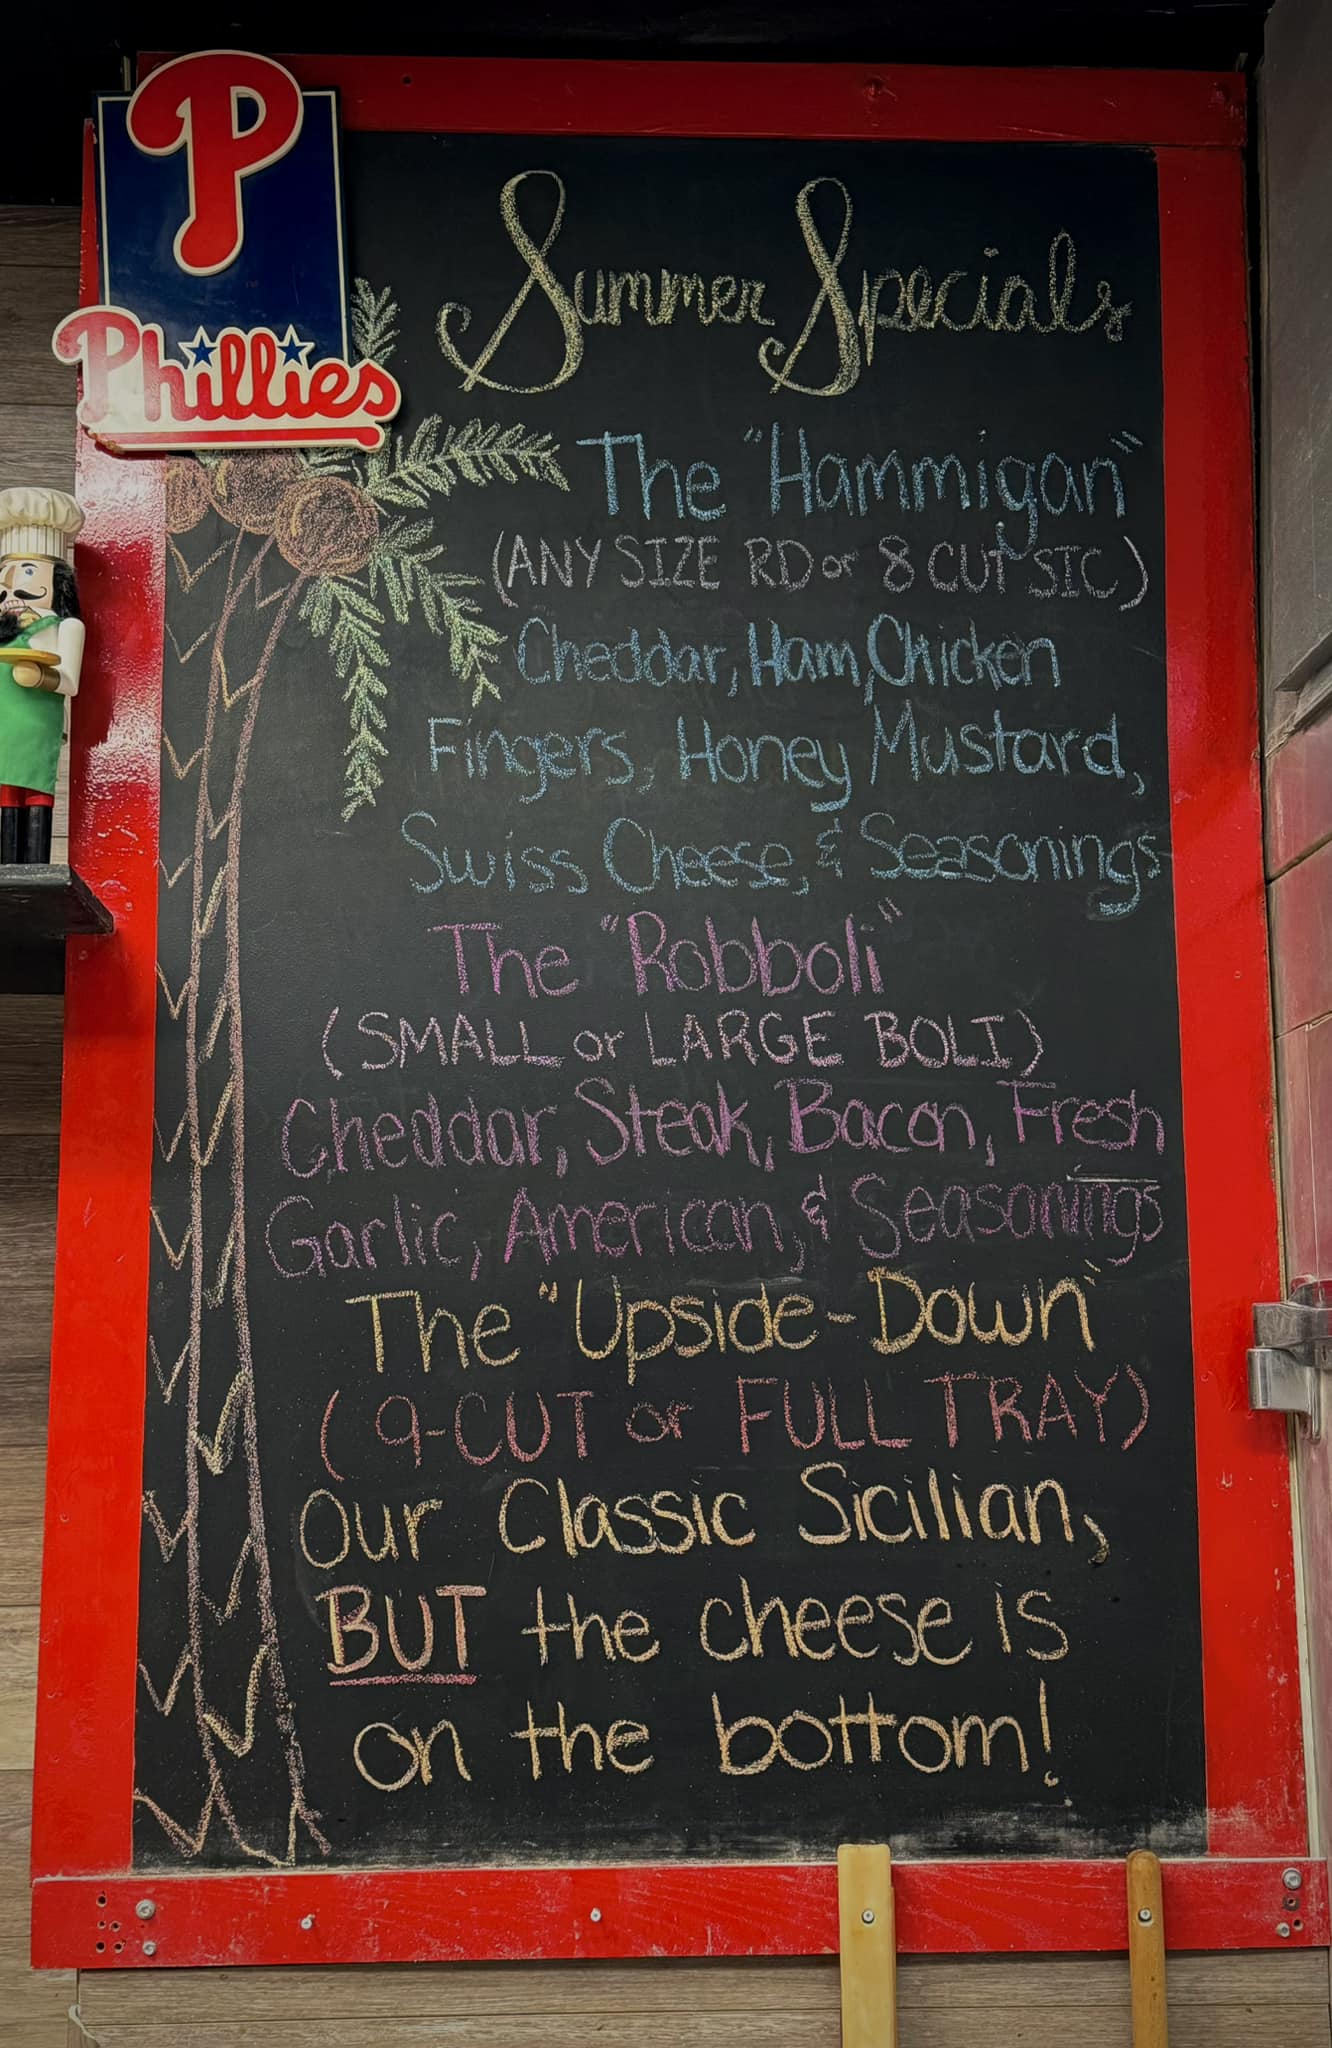 P
Phillies
Summer Specials
The "Hammigan"
(ANY SIZE RD or 8 CUT SIC)
Cheddar, Ham, Chicken
Fingers, Honey Mustard,
Swiss Cheese, & Seasonings
The "Robboli"
(SMALL or LARGE BOLI)
Cheddar, Steak, Bacon, Fresh
Garlic, American, & Seasonings
The "Upside-Down"
(9-CUT or FULL TRAY)
Our Classic Sicilian,
BUT the cheese is
on the bottom!